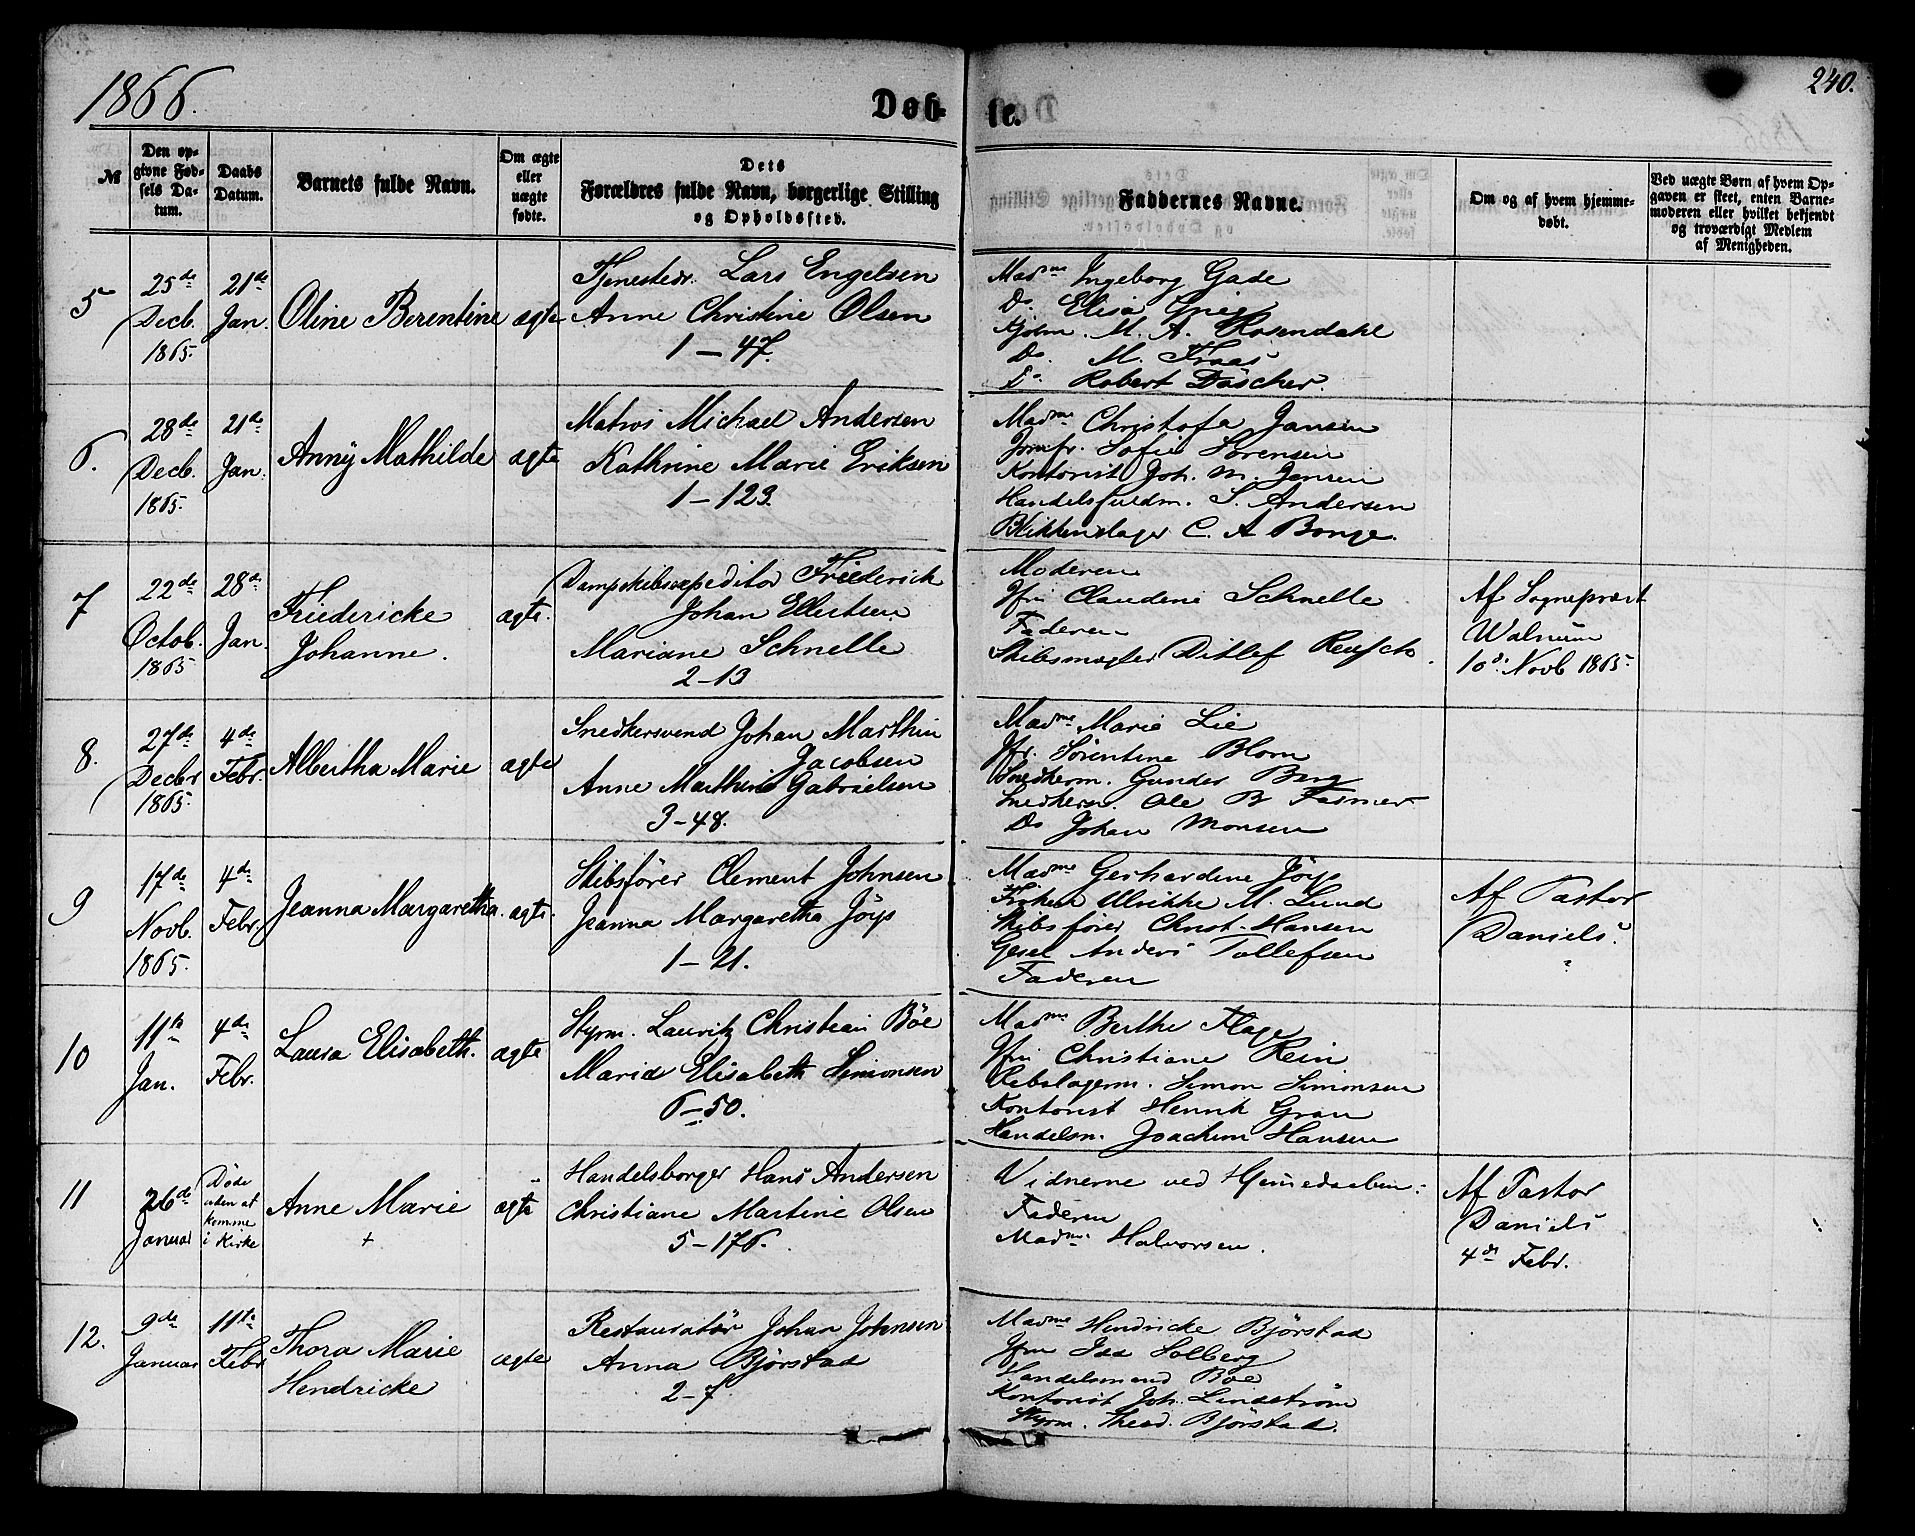 1866.
Døbte.
240.
№
Den opgivne Fødsels Datum.
Daabs Datum.
Barnets fulde Navn.
Om ægte eller uægte fødte.
Dets Forældres fulde Navn, borgerlige Stilling og Opholdssted.
Faddernes Navne.
Om og af hvem hjemmedøbt.
Ved uægte Børn af hvem Opgaven er skeet, enten Barnemoderen eller hvilket bekjendt og troværdigt Medlem af Menigheden.
5
25de Decb. 1865.
21de Jan.
Oline Berentine
ægte
Tjenestedr. Lars Engelsen
Anne Christine Olsen
1-47.
Madme Ingeborg Gade
Do. Elisa Grieg
M. A. Rosendahl
Do. M. Traas
Do. Robert Döscher.
6.
28de Decb. 1865.
21de Jan.
Anny Mathilde
ægte
Matros Michael Andersen
Kathrine Marie Eriksen
1-123.
Madme Christofa Jansen
Jomfr. Sofie Sørensen
Kontorist Joh. M. Jensen
Handelsfuldm. S. Andersen
Blikkenslager C. A Bonge.
7
22de Octob. 1865
28de Jan.
Friedericke
Johanne.
ægte.
Dampskibsexpeditor Friederick
Johan Ellertsen
Mariane Schnelle
2-13
Moderen
Jfri Claudine Schnelle
Faderen
Skibsmægler Ditlef Reusch.
Af Sognepræst
Walnum
10d. Novb 1865.
8.
27de Decbr 1865.
4de Febr.
Albertha Marie
ægte
Snedkersvend Johan Marthin
Jacobsen
Anne Marthine Gabrielsen
3-48.
Madme Marie Lie
Jfr. Sørentine Blom
Snedkerm. Gunder Berg
Snedkersv. Ole B Fasmer
Do Johan Monsen
9
17de Novb. 1865.
4de Febr.
Jeanna Margaretha.
ægte.
Skibsfører Clement Johnsen
Jeanna Margaretha Jöys
1-21.
Madme Gerhardine Jöys
Frøken Ulrikke M. Lund
Skibsfører Christ. Hansen
Gesel Anders Tollefsen
Faderen
Af Pastor
Daniels.
10
11te Jan.
4de Febr.
Laura Elisabeth.
ægte
Styrm. Lauritz Christian Böe
Marie Elisabeth Simonsen
6-50.
Madme Berthe Flage
Jfri Christiane Rein
Rebslagerm. Simon Simonsen
Kontorist Henrik Gran
Handelsm. Joachim Hansen
11
26de Januar
Døde uden at komme i Kirke
Anne Marie
+
ægte
Handelsborger Hans Andersen
Christiane Martine Olsen
5-176.
Vidnerne ved Hjemmedaaben:
Faderen
Madme Halvorsen.
Af Pastor
Daniels
4de Febr.
12.
9de Januar
11te Febr
Thora Marie
Hendricke
ægte
Restauratör Johan Johnsen
Anna Björstad
2-7.
Madme Hendricke Björstad
Jfru Ida Solberg
Handelsmand Böe
Kontorist Joh. Lindström
Styrm. Thead. Björstad.